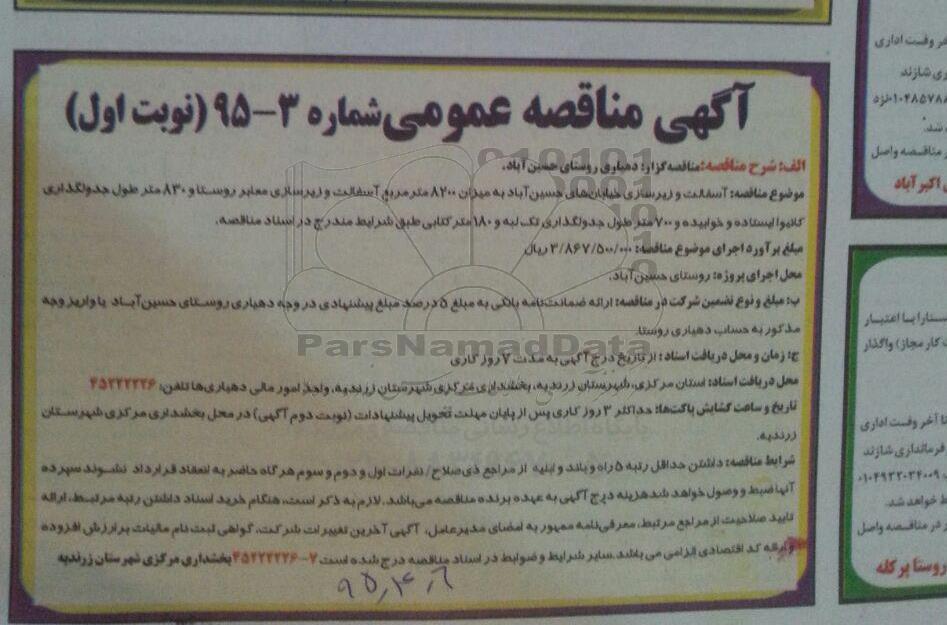 آگهی مناقصه عمومی شماره ۳-۹۵ (نوبت اول)
الف: شرح مناقصه: مناقصه گزار: دهیاری روستای حسین آباد.
موضوع مناقصه: آسفالت و زیرسازی خیابان‌های حسین آباد به میزان ۸۲۰۰ متر مربع آسفالت و زیرسازی معابر روستا و ۸۳۰ متر طول جدولگذاری
کانیوا ایستاده و خوابیده و ۷۰۰ متر طول جدولگذاری تک لبه و ۱۸۰ متر کتابی طبق شرایط مندرج در اسناد مناقصه.
مبلغ برآورد اجرای موضوع مناقصه: ۳/۸۶۷/۵۰۰/۰۰۰ ریال
محل اجرای پروژه: روستای حسین آباد.
ب: مبلغ و نوع تضمین شرکت در مناقصه: ارائه ضمانت‌نامه بانکی به مبلغ ۵ درصد مبلغ پیشنهادی در وجه دهیاری روستای حسین‌آباد یا واریز وجه
مذکور به حساب دهیاری روستا.
ParsNamadData
ج: زمان و محل دریافت اسناد: از تاریخ درج آگهی به مدت ۷ روز کاری
محل دریافت اسناد: استان مرکزی، شهرستان زرندیه، بخشداری مرکزی شهرستان زرندیه، واحد امور مالی دهیاری‌ها تلفن: ۴۵۲۲۲۲۲۶
تاریخ و ساعت گشایش پاکت‌ها: حداکثر ۳ روز کاری پس از پایان مهلت تحویل پیشنهادات (نوبت دوم آگهی) در محل بخشداری مرکزی شهرستان
زرندیه.
شرایط مناقصه: داشتن حداقل رتبه ۵ راه و باند و ابنیه از مراجع ذی‌صلاح / نفرات اول و دوم و سوم هرگاه حاضر به انعقاد قرارداد نشوند سپرده
آنها ضبط و وصول خواهد شد هزینه درج آگهی به عهده برنده مناقصه می‌باشد. لازم به ذکر است، هنگام خرید اسناد داشتن رتبه مرتبط، ارائه
تایید صلاحیت از مراجع مرتبط، معرفی‌نامه ممهور به امضای مدیرعامل، آگهی آخرین تغییرات شرکت، گواهی ثبت نام مالیات بر ارزش افزوده
و ارائه کد اقتصادی الزامی می باشد. سایر شرایط و ضوابط در اسناد مناقصه درج شده است ۷-۴۵۲۲۲۲۲۶ بخشداری مرکزی شهرستان زرندیه
۹۵,۴,۶
خر وقت اداری
ری شازند
نزد
شد.
ر مناقصه واصل
اکبرآباد
ستارا با اعتبار
ت کار مجاز) واگذار
تا آخر وقت اداری
فرمانداری شازند
خواهد شد.
ر در مناقصه واصل
روستا پرکله